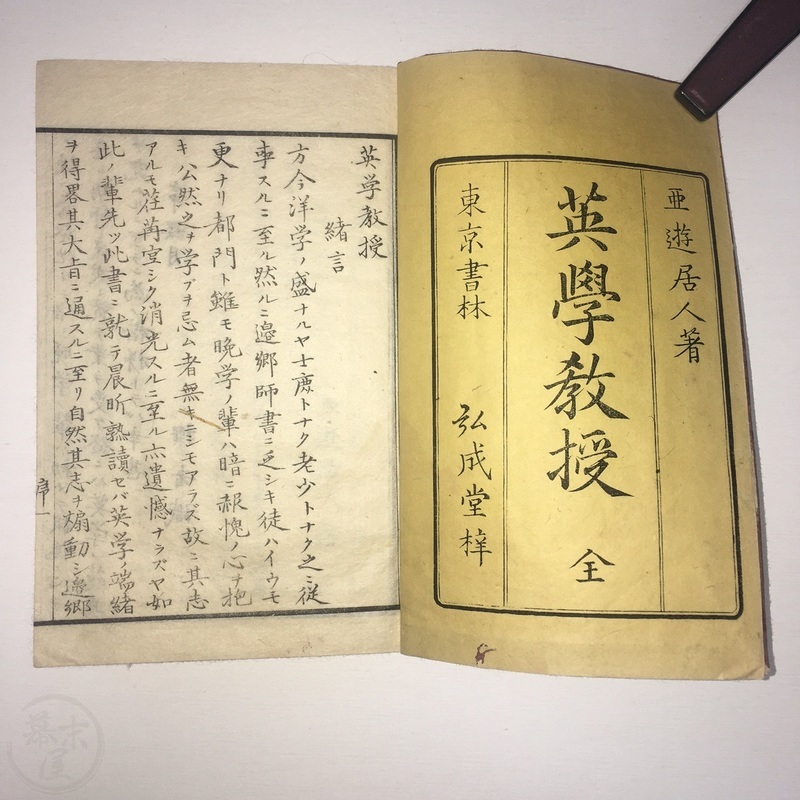 亜遊居人著
英學教授 全
東京書林 弘成堂梓
英学教授
緒言
方今洋学ノ盛ナルヤ士庶トナク老少トナク之ニ従
事スルニ至ル然ルニ邉郷師書ニ乏シキ徒ハイウモ
更ナリ都門ト雖モ晩学ノ輩ハ暗ニ赧愧ノ心ヲ抱
キ公然之ヲ学ブヲ忌ム者無キニシモアラズ故ニ其志
アルモ荏苒空シク消光スルニ至ル亦遺憾ナラズヤ如
此ノ輩先ツ此書ニ就テ晨昕熟讀セバ英学ノ端緒
ヲ得畧其大㫖ニ通スルニ至リ自然其志ヲ煽動シ邉郷
序一
幕末屋